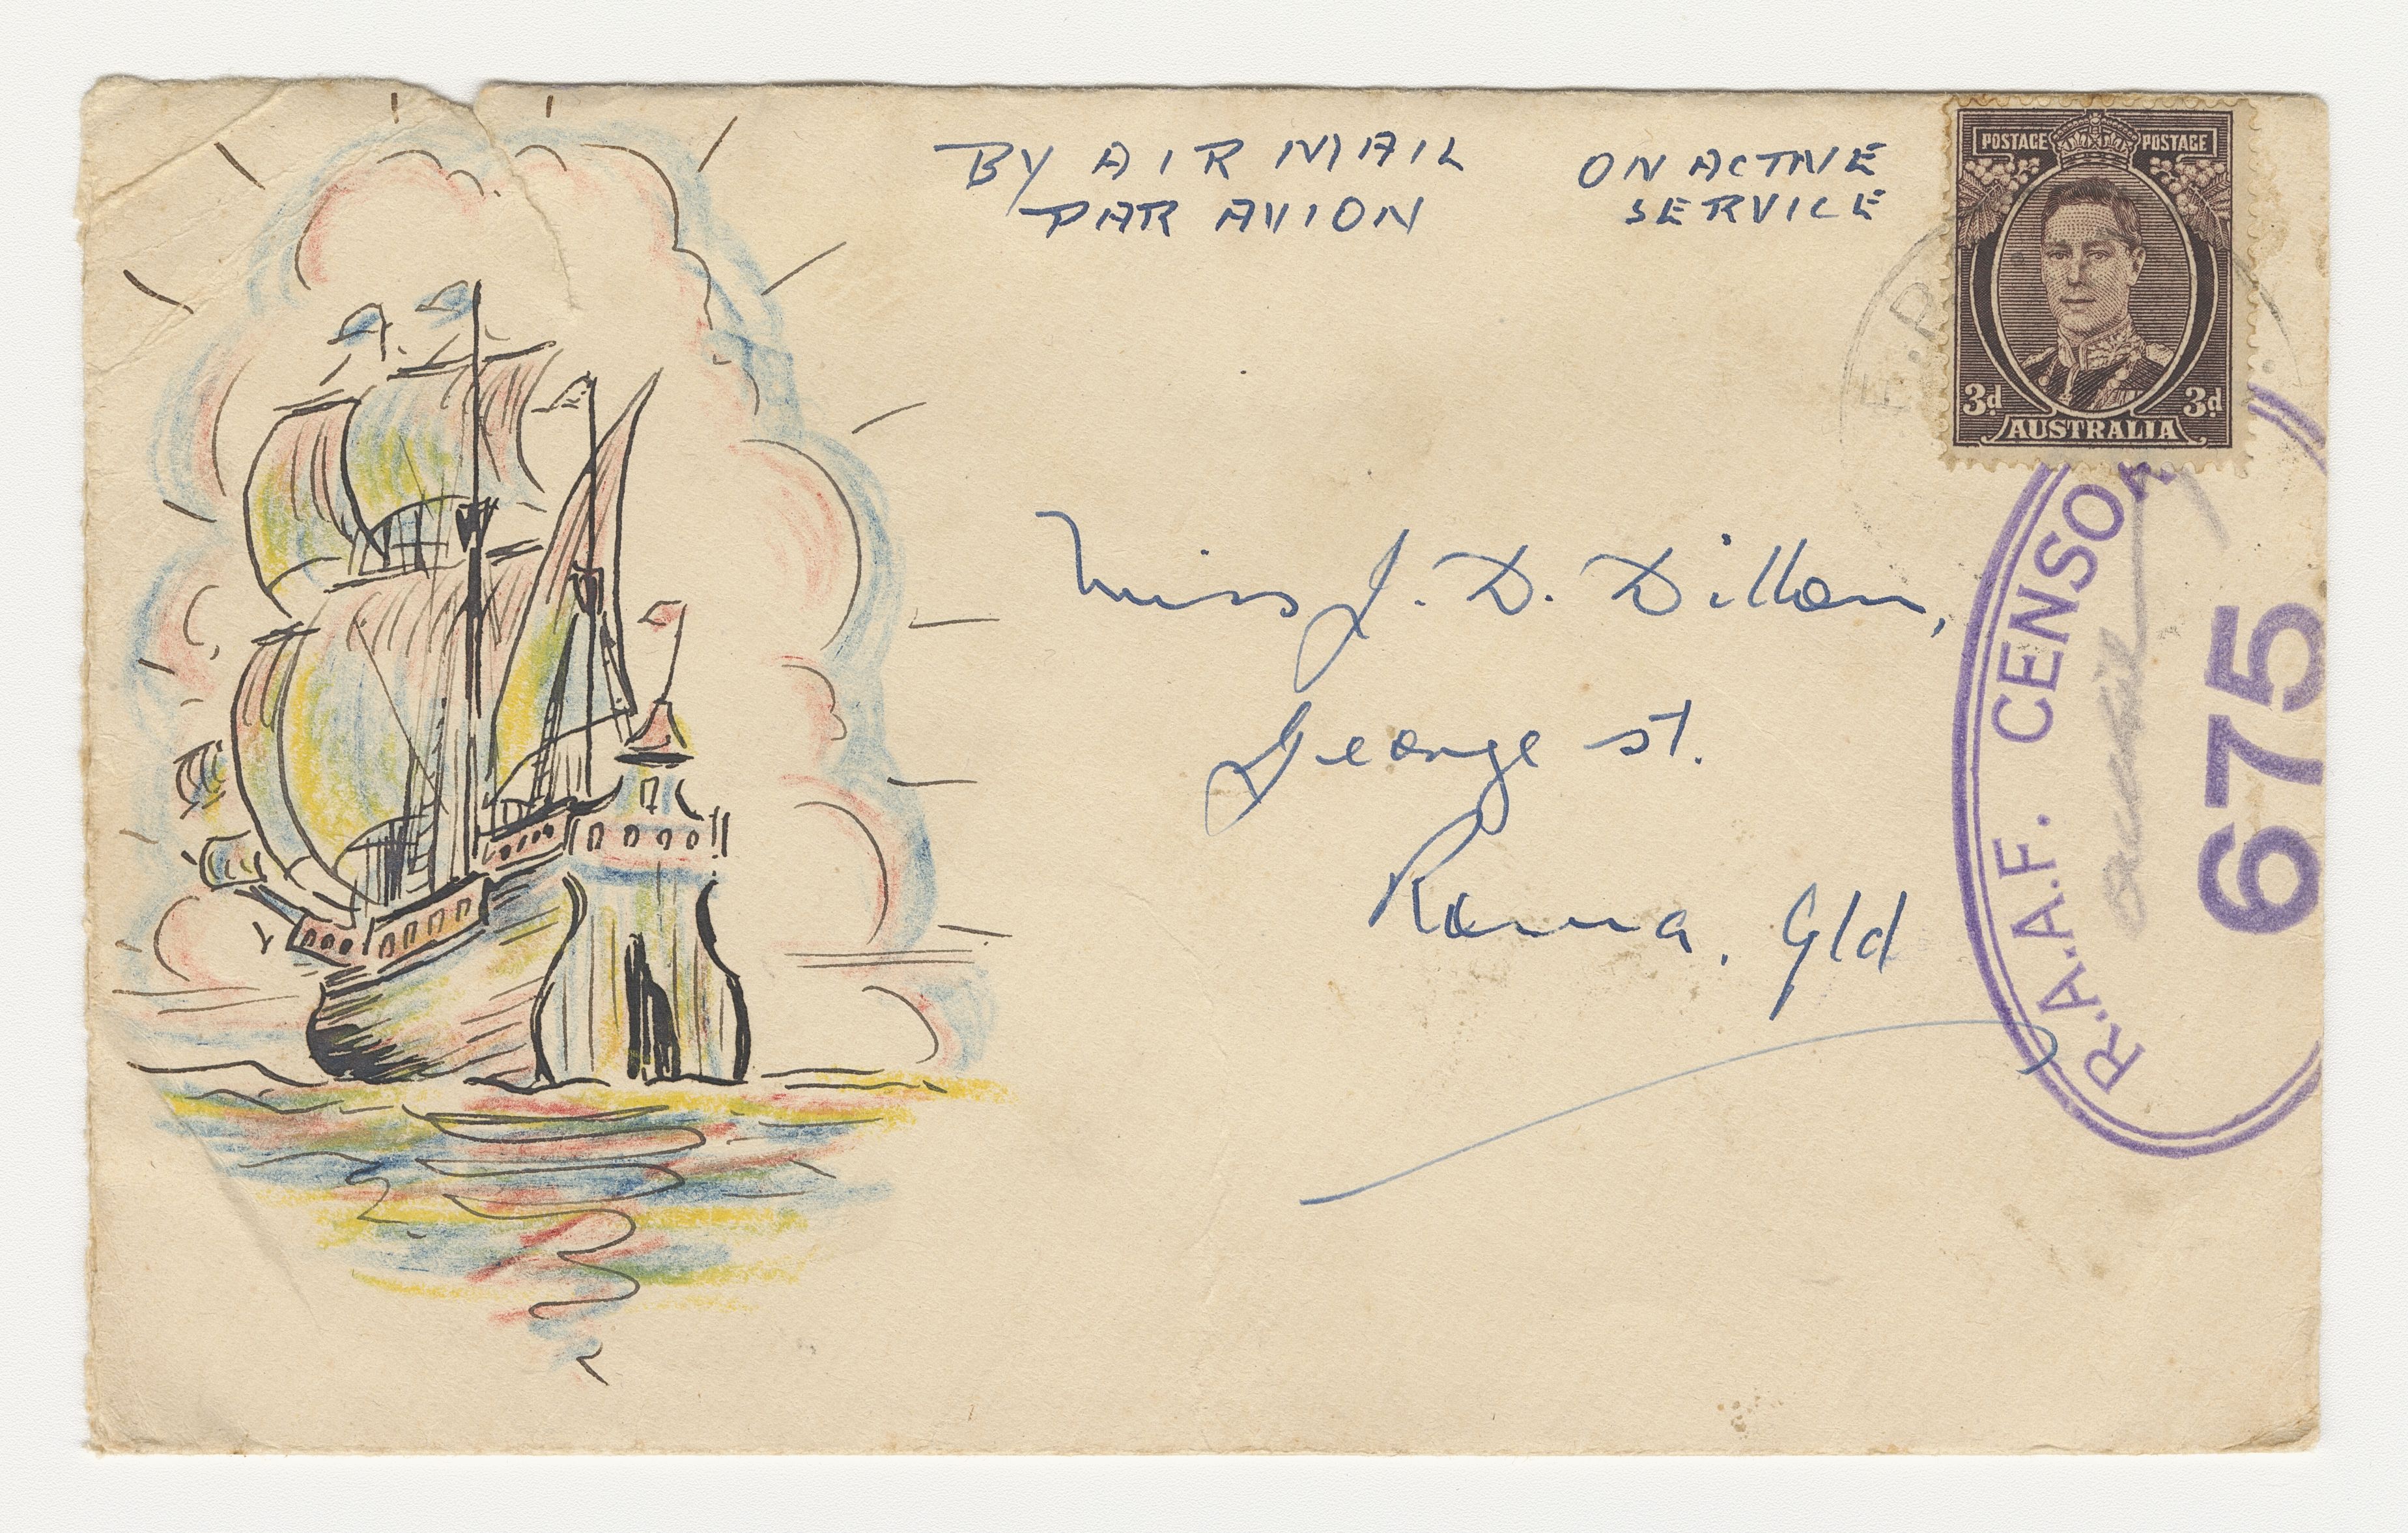 BY AIR MAIL
PAR AVION
ON ACTIVE
SERVICE
POSTAGE POSTAGE
3d 3d
AUSTRALIA
Miss J. D. Dillon,
George St.
Roma. Qld
R.A.A.F. CENSOR
675